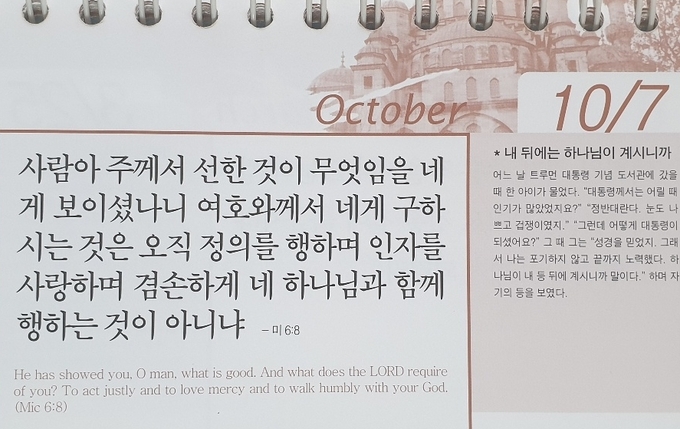 October
10/7
사람아 주께서 선한 것이 무엇임을 네
게 보이셨나니 여호와께서 네게 구하
시는 것은 오직 정의를 행하며 인자를
사랑하며 겸손하게 네 하나님과 함께
행하는 것이 아니냐 – 미 6:8
He has showed you, O man, what is good. And what does the LORD require
of you? To act justly and to love mercy and to walk humbly with your God.
(Mic 6:8)
* 내 뒤에는 하나님이 계시니까
어느 날 트루먼 대통령 기념 도서관에 갔을
때 한 아이가 물었다. "대통령께서는 어릴 때
인기가 많았었지요?" "정반대란다. 눈도 나
쁘고 겁쟁이였지." "그런데 어떻게 대통령이
되셨어요?" 그 때 그는 "성경을 믿었지. 그래
서 나는 포기하지 않고 끝까지 노력했다. 하
나님이 내 등 뒤에 계시니까 말이다." 하며 자
기의 등을 보였다.